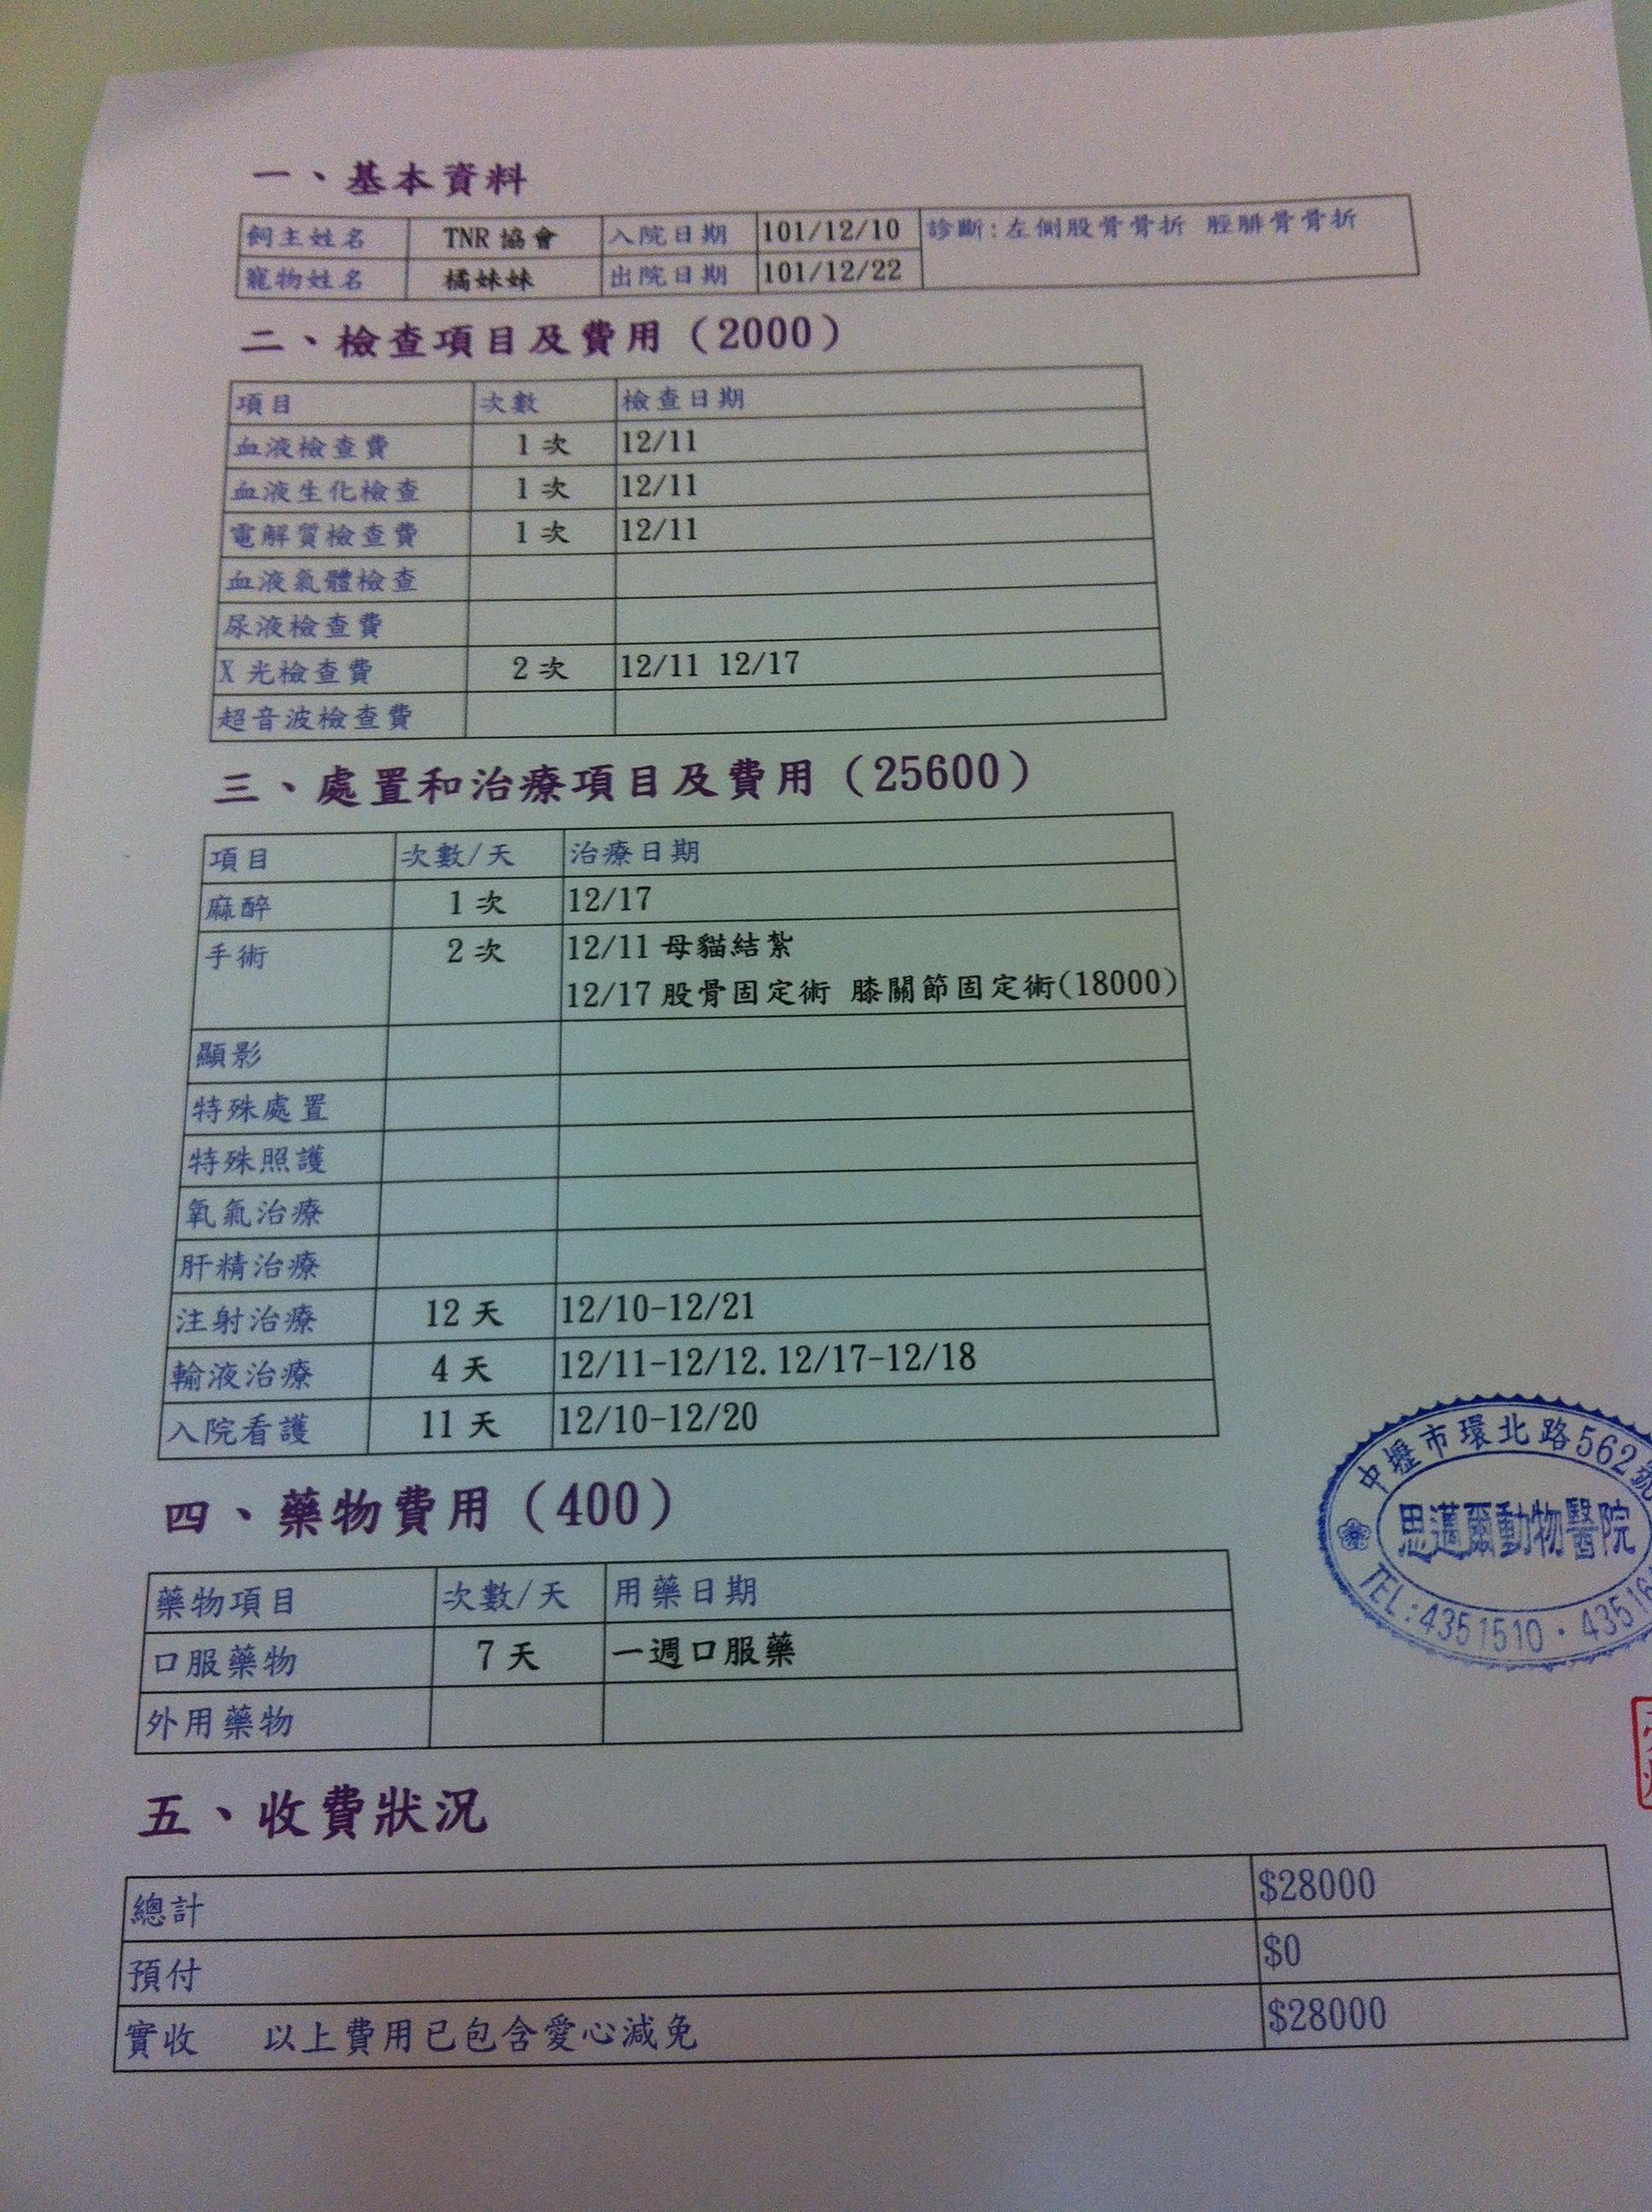 一、基本資料
飼主姓名 TNR 協會 入院日期 101/12/10 診斷:左側股骨骨折 脛腓骨骨折
寵物姓名 橘妹妹 出院日期 101/12/22
二、檢查項目及費用(2000)
項目 次數 檢查日期
血液檢查費 1 次 12/11
血液生化檢查 1 次 12/11
電解質檢查費 1 次 12/11
血液氣體檢查
尿液檢查費
X 光檢查費 2 次 12/11 12/17
超音波檢查費
三、處置和治療項目及費用(25600)
項目 次數/天 治療日期
麻醉 1 次 12/17
手術 2 次 12/11 母貓結紮
12/17 股骨固定術 膝關節固定術(18000)
顯影
特殊處置
特殊照護
氧氣治療
肝精治療
注射治療 12 天 12/10-12/21
輸液治療 4 天 12/11-12/12.12/17-12/18
入院看護 11 天 12/10-12/20
中壢市環北路562號
思邁爾動物醫院
TEL:4351510・43516
四、藥物費用(400)
藥物項目 次數/天 用藥日期
口服藥物 7 天 一週口服藥
外用藥物
五、收費狀況
總計 $28000
預付 $0
實收 以上費用已包含愛心減免 $28000